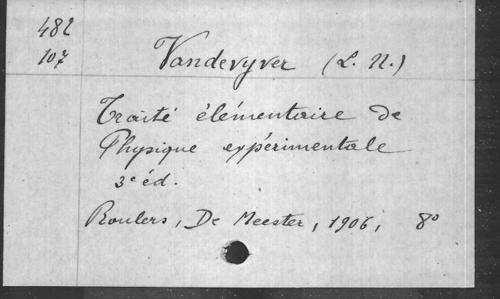 482
107
Vandevyver (L. N.)
Traité élémentaire de
Physique expérimentale
3e éd.
Roulers, De Meester, 1906, 8°